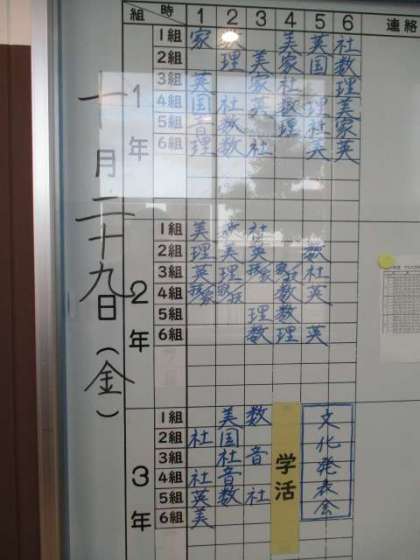 十月二十九日(金)
組 時 1 2 3 4 5 6 連絡
1年
1組 家 美 英 社
2組 理 美 家 国 数
3組 英 家 社 理
4組 国 社 英 数 理 美
5組 音 数 理 社 家
6組 理 数 社 美 英
2年
1組 美 社
2組 理 美 英 数
3組 英 理 社
4組 数 英
5組 理 数
6組 数 理 英
3年
1組 美 数
2組 社 国
3組 社 音
4組 社 音
5組 英 数 社
6組 美
学活
文化発表会